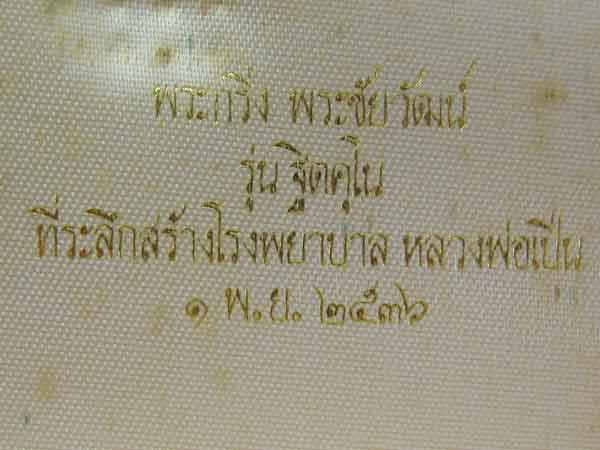 พระกริ่ง พระชัยวัฒน์
รุ่น ฐิตคุโณ
ที่ระลึกสร้างโรงพยาบาล หลวงพ่อเปิ่น
๑ พ.ย. ๒๕๓๖